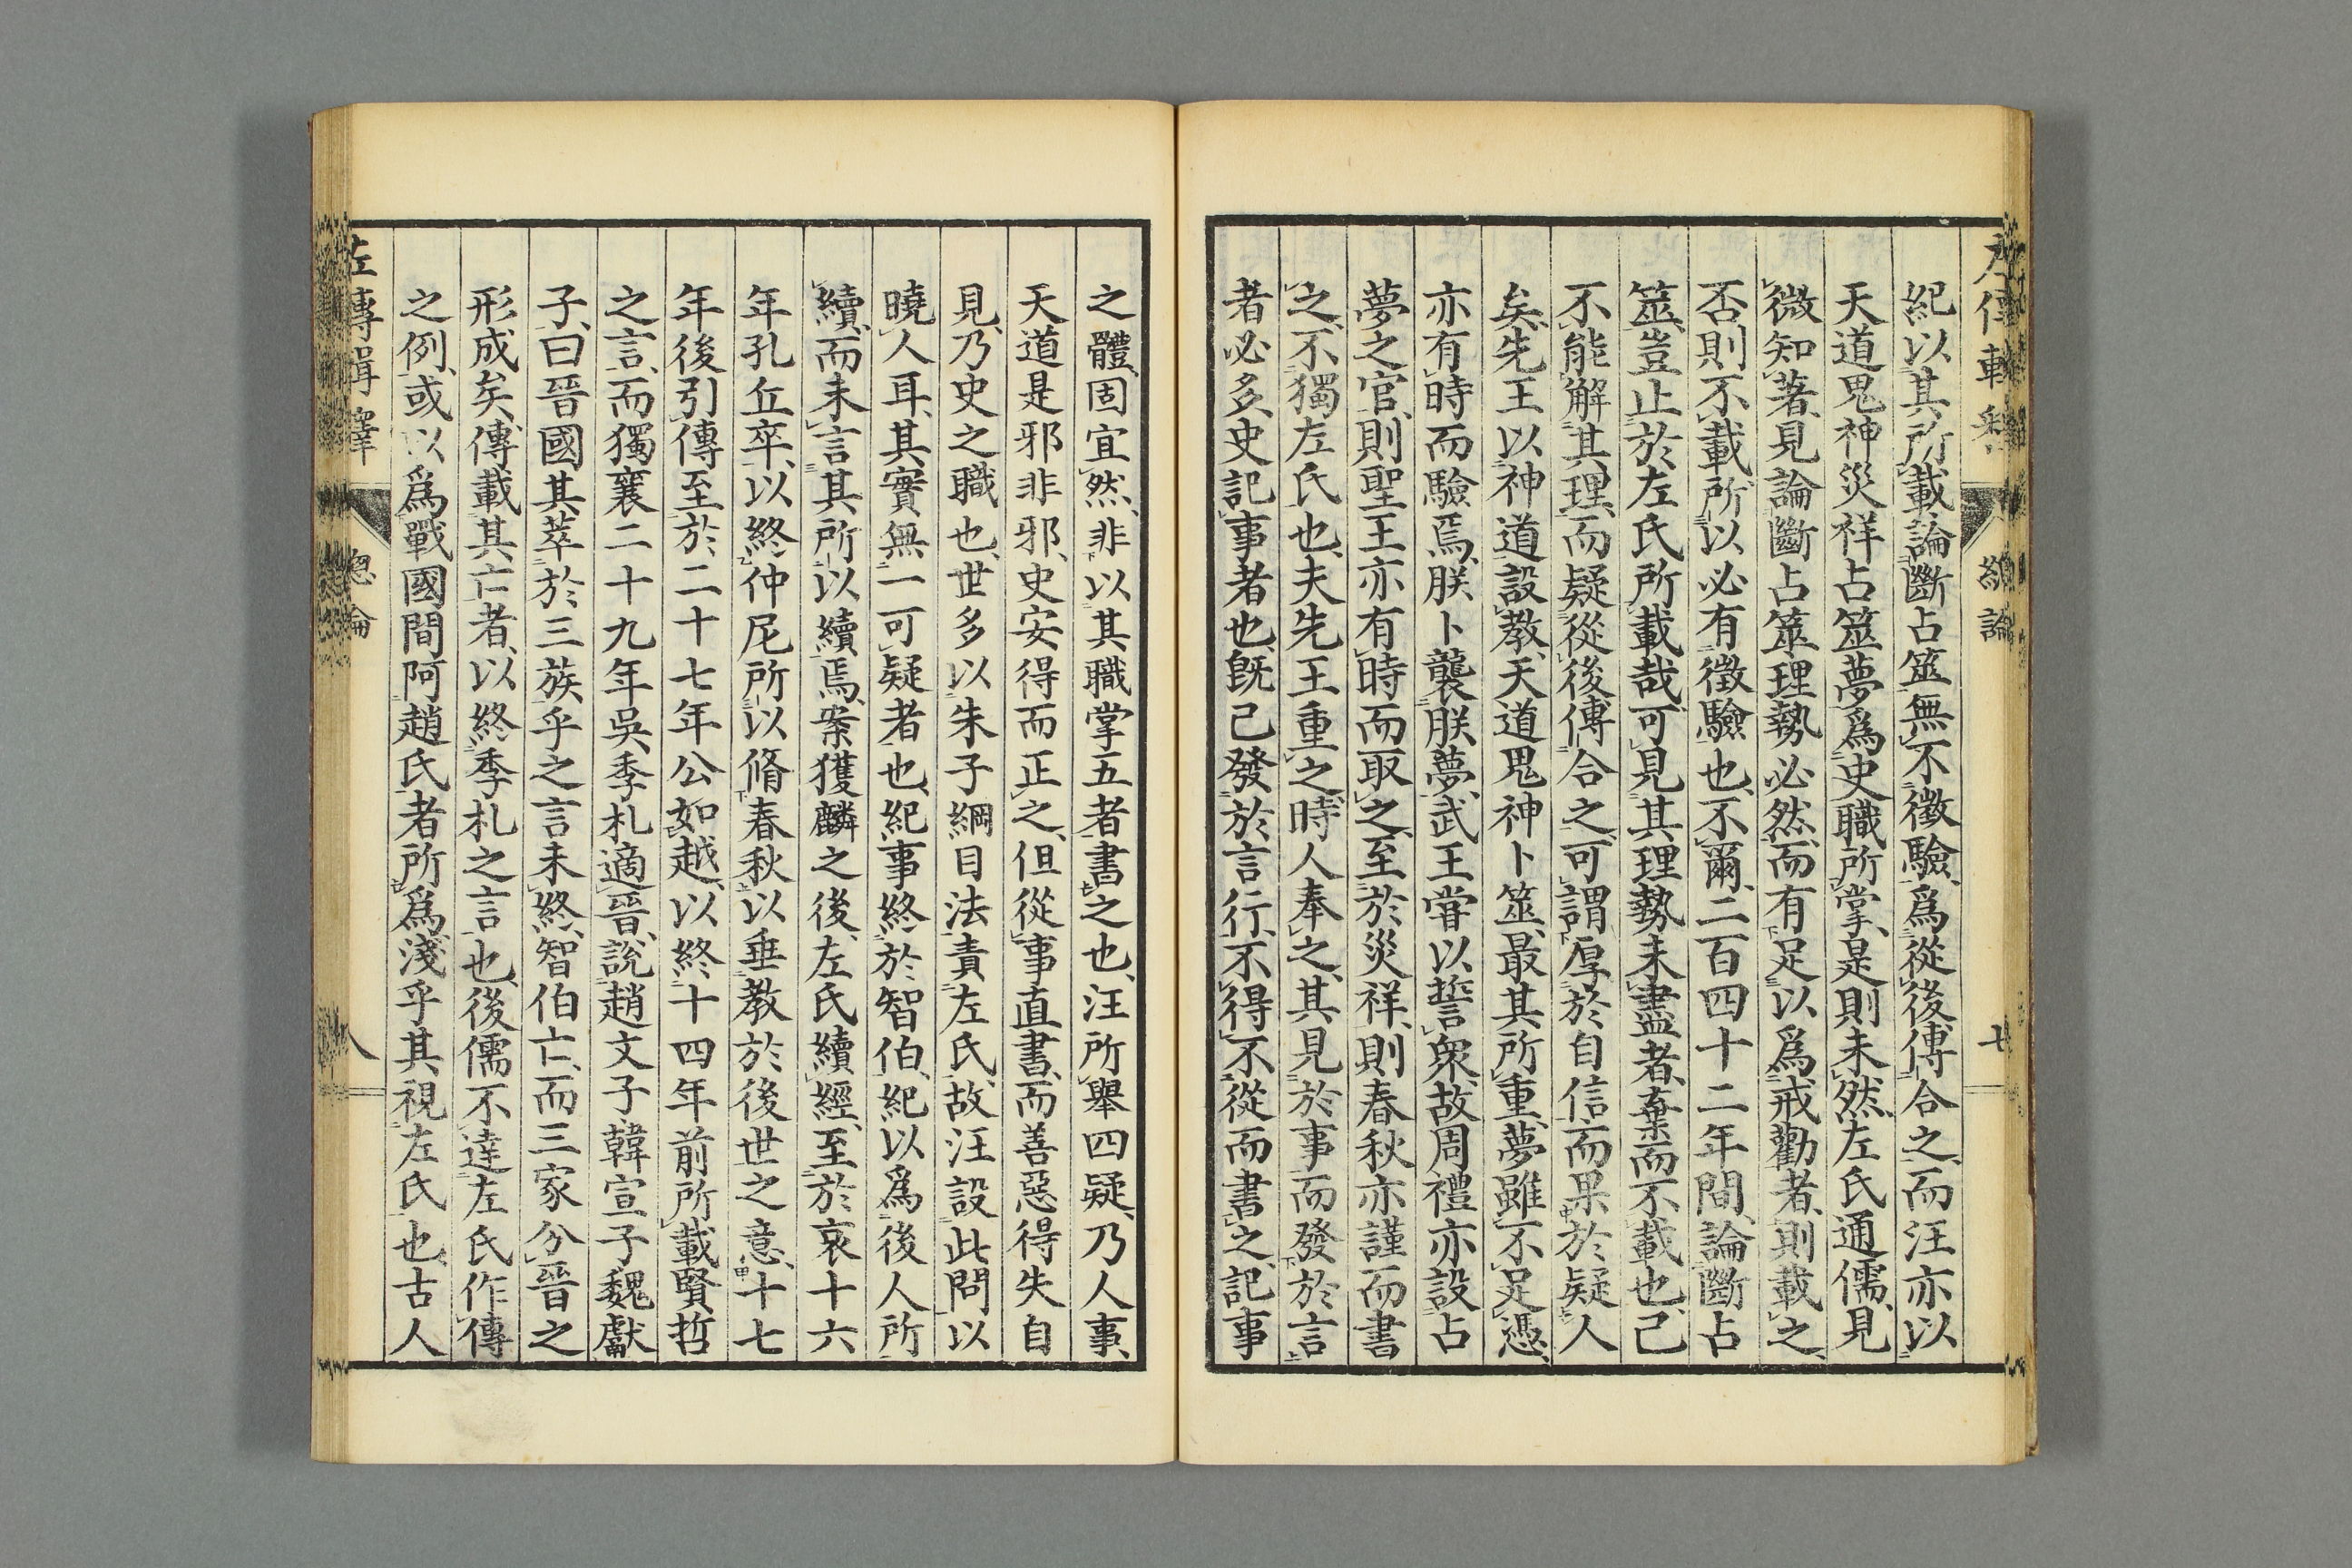 紀以其所載論斷占筮無不徵驗爲從後傅合之而汪亦以
天道鬼神災祥占筮夢爲史職所掌是則未然左氏通儒見
微知著見論斷占筮理勢必然而有足以爲戒勸者則載之
否則不載所以必有徵驗也不爾二百四十二年間論斷占
筮豈止於左氏所載哉可見其理勢未盡者棄而不載也己
不能解其理而疑從後傅合之可謂厚於自信而果於疑人
矣先王以神道設教天道鬼神卜筮最其所重夢雖不足憑
亦有時而驗焉朕卜襲朕夢武王嘗以誓衆故周禮亦設占
夢之官則聖王亦有時而取之至於災祥則春秋亦謹而書
之不獨左氏也夫先王重之時人奉之其見於事而發於言
者必多史記事者也既已發於言行不得不從而書之記事
左傳輯釋
總論
七
之體固宜然非以其職掌五者書之也汪所舉四疑乃人事
天道是邪非邪史安得而正之但從事直書而善惡得失自
見乃史之職也世多以朱子綱目法責左氏故汪設此問以
曉人耳其實無一可疑者也紀事終於智伯紀以爲後人所
續而未言其所以續焉案獲麟之後左氏續經至於哀十六
年孔丘卒以終仲尼所以脩春秋以垂教於後世之意十七
年後引傳至於二十七年公如越以終十四年前所載賢哲
之言而獨襄二十九年吳季札適晉說趙文子韓宣子魏獻
子曰晉國其萃於三族乎之言未終智伯亡而三家分晉之
形成矣傳載其亡者以終季札之言也後儒不達左氏作傳
之例或以爲戰國間阿趙氏者所爲淺乎其視左氏也古人
左傳輯釋
總論
八